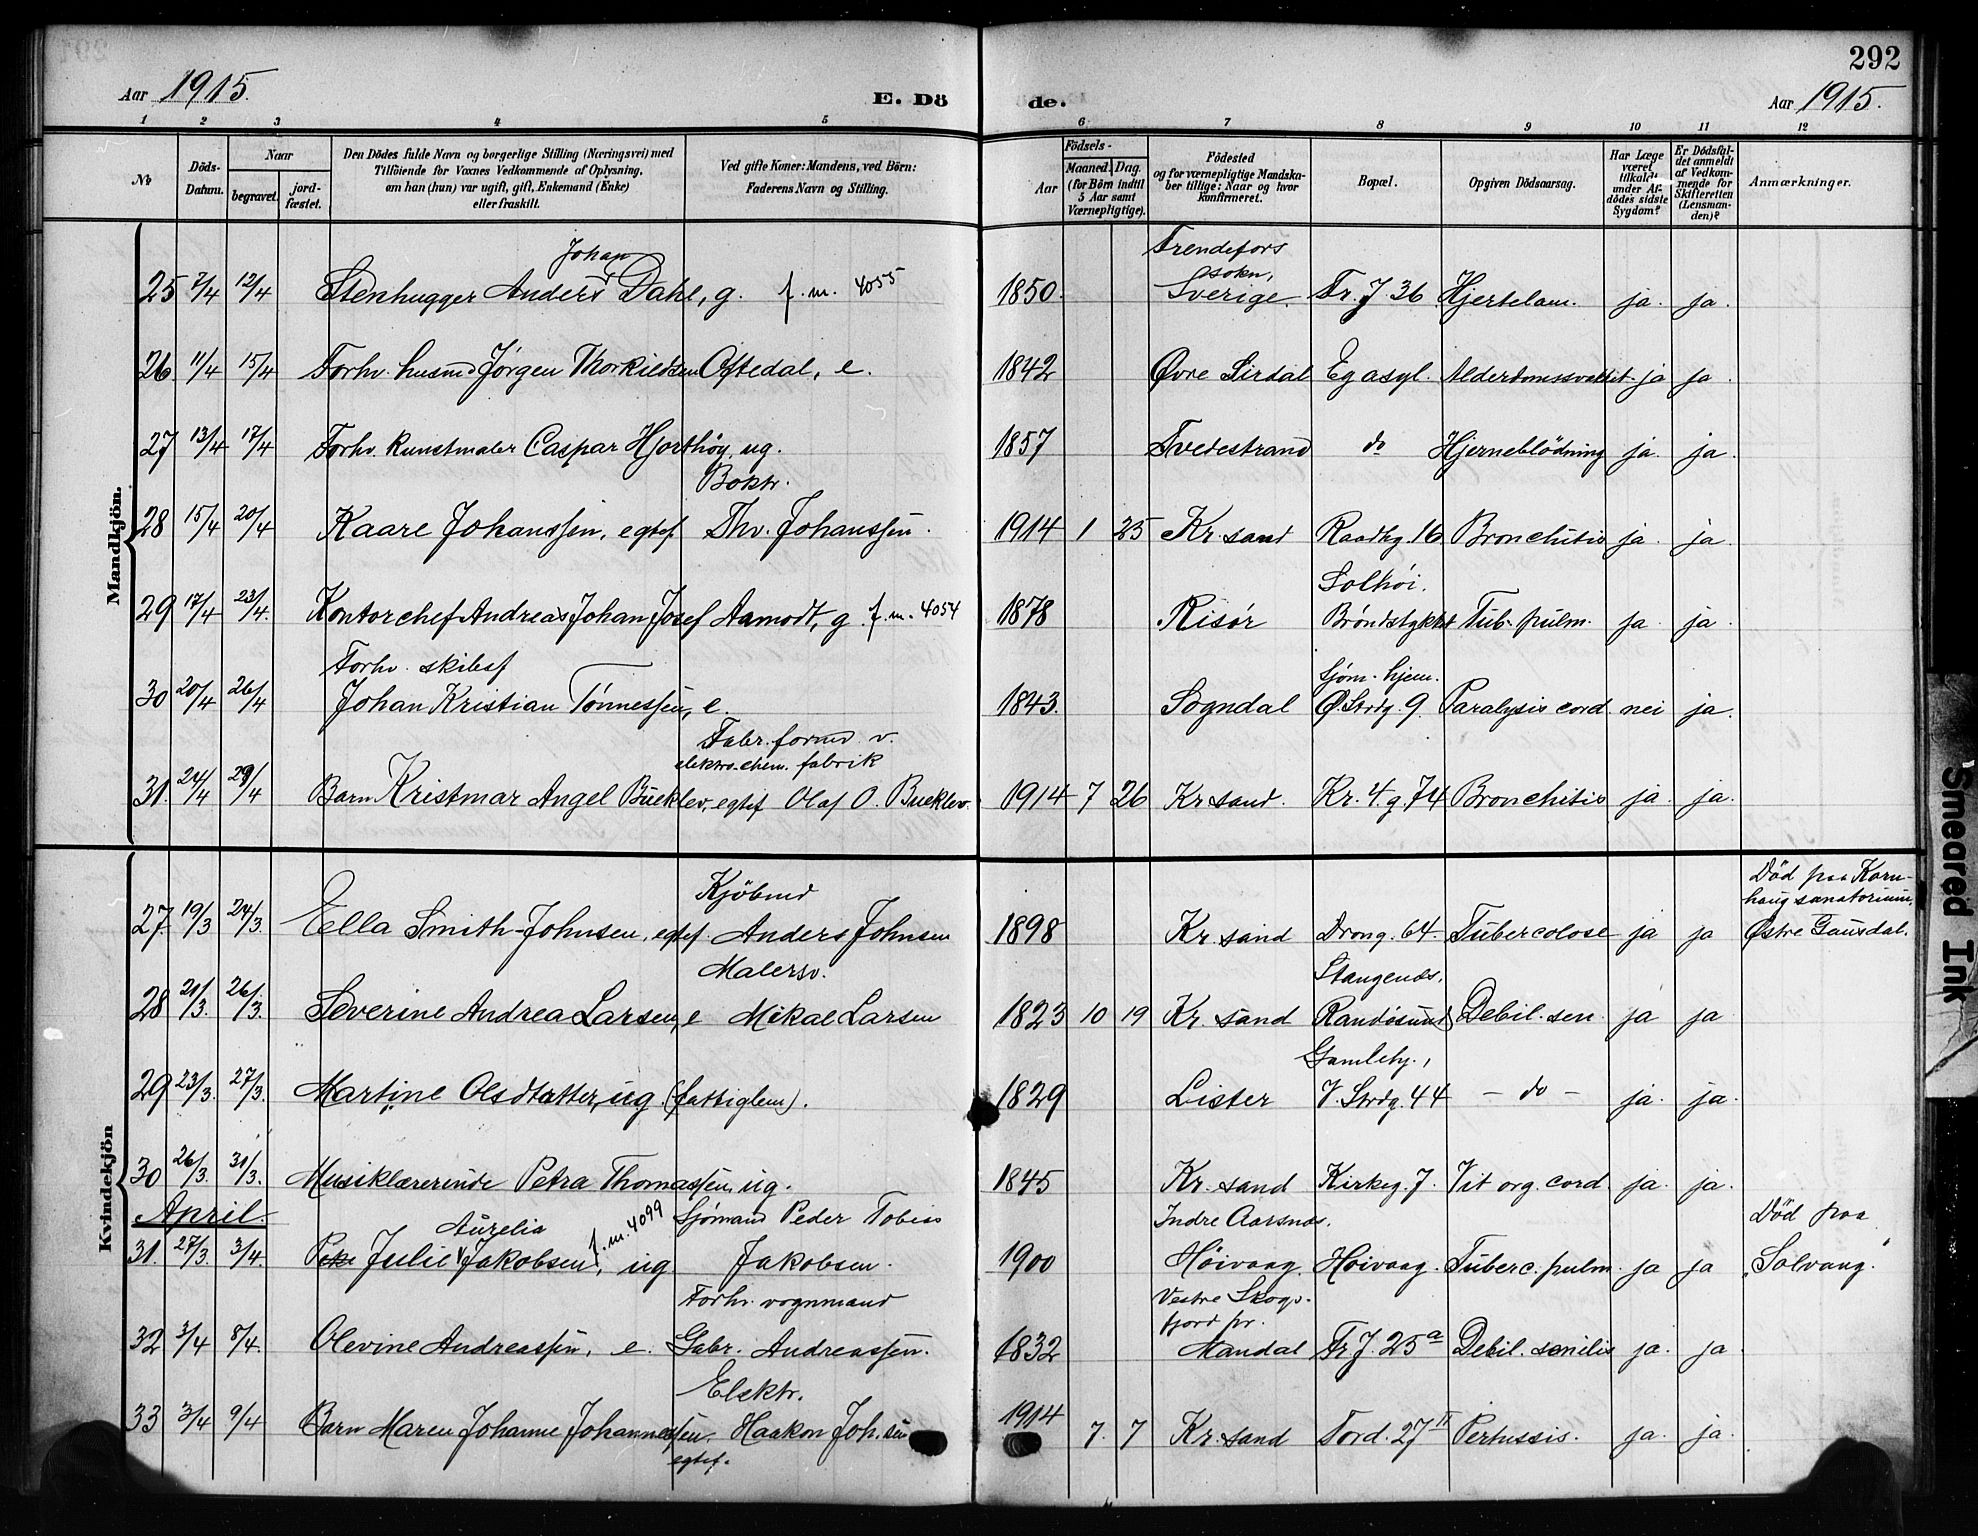 292
Aar 1915.
E. Dö de.
Aar 1915.
1 2 3 4 5 6 7 8 9 10 11 12
Nr
Döds-Datum.
Naar
begravet.
jord-fæstet.
Den Dödes fulde Navn og borgerlige Stilling (Næringsvei) med
Tilföiende for Voxnes Vedkommende af Oplysning,
om han (hun) var ugift, gift, Enkemand (Enke)
eller fraskilt.
Ved gifte Koner: Mandens, ved Börn:
Faderens Navn og Stilling.
Födsels-
Aar
Maaned. Dag.
(for Börn indtil
5 Aar samt
Værnepligtige).
Födested
og for værnepligtige Mandska-
ber tillige: Naar og hvor
konfirmeret.
Bopæl.
Opgiven Dödsaarsag.
Har Læge
været
tilkaldt
under Af-
dödes sidste
Sygdom?
Er Dödsfal-
det anmeldt
af Vedkom-
mende for
Skifteretten
(Lensman-
den)?
Anmærkninger.
Mandkjön.
Johan Trendefors
sokn,
25 7/4 12/4 Stenhugger Anders Dahl, g. f. m. 4055 1850. Sverige Tr. J 36 Hjertelam. ja. ja.
26 11/4 15/4 Forhv. husmd Jørgen Thorkildsen Oftedal, e. 1842 Øvre Sirdal Eg asyl. Alderdomssvakket ja ja.
27 13/4 17/4 Forhv. kunstmaler Caspar Hjorthöy, ug. 1857 Tvedestrand do Hjerneblödning ja. ja.
Boktr.
28 15/4 20/4 Kaare Johanssen, egtef. Thv. Johanssen. 1914 1 25 Kr. sand Raadhg. 16 Bronchitis ja. ja.
Solhöi.
29 17/4 23/4. Kontorchef Andreas Johan Josef Aamodt, g. f. m. 4054 1878 Risør Bröndstykket Tub. pulm. ja. ja.
Forhv. skibsf Sjøm. hjem.
30 20/4 26/4 Johan Kristian Tønnessen, e. 1843. Sogndal Ø. Strdg. 9. Paralysis cord. nei ja.
Fabr. formd v.
elektro-chem. fabrik
31. 24/4 29/4 Barn Kristmar Angel Bueklev, egtef Olaf O. Bueklev. 1914 7 26 Kr sand. Kr. 4. g 74 Bronchitis ja. ja.
Kvindekjön
Kjöbmd Död paa Korn-
haug sanatorium,
27. 19/3 24/3. Ella Smith-Johnsen, egtef. Anders Johnsen 1898 Kr. sand Drong. 64. Tubercolose ja ja Østre Gausdal.
Malersv. Stangenes,
28 21/3. 26/3. Severine Andrea Larsen, e Mikael Larsen 1823 10 19 Kr. sand Randøsund Debil. sen. ja ja
Gamlehj.,
29 23/3. 27/3. Martine Olsdtatter, ug. (fattiglem). 1829 Lister V. Strdg. 44 – do – ja. ja.
30 26/3. 31/3. Musiklærerinde Petra Thomassen, ug. 1845 Kr. sand Kirkeg. 7. Vit. org. cord. ja. ja.
April.
Aurelia f. m. 4099 Sjømand Peder Tobias Indre Aarsnes, Död paa
31. 27/3. 3/4. Julie Jakobsen, ug Jakobsen. 1900 Höivaag. Höivaag. Tuberc. pulm. ja ja "Solvang."
Forhv. vognmand Vestre Skogs-
fjord pr.
32 3/4 8/4. Olevine Andreassen, e. Gabr. Andreassen. 1832 Mandal Tr J. 25 a Debil. senilis ja. ja
Elektr.
33 3/4 9/4 Barn Maren Johanne Johannessen. Haakon Joh.sen 1914 7. 7 Kr. sand Tord. 27 II Pertussis. ja. ja.
egtef.
Smeared Ink